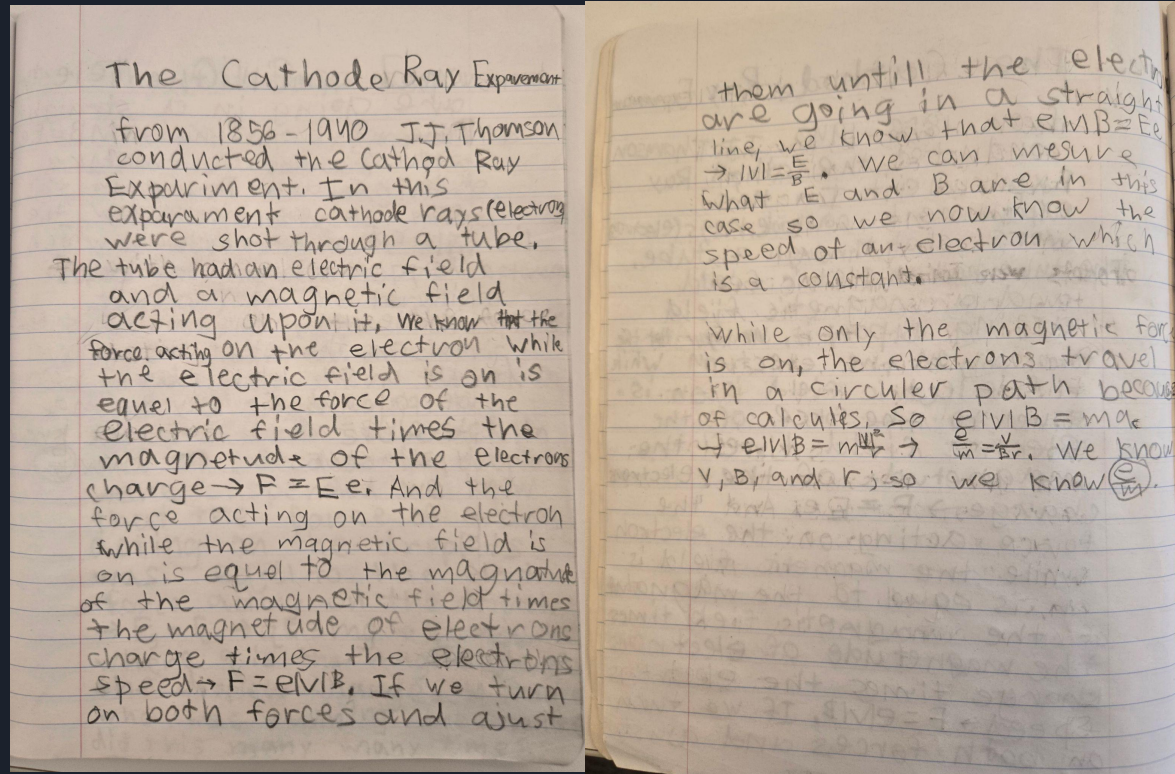 The Cathode Ray Expavement
from 1856-1940 J.J. Thomson
conducted the Cathod Ray
Expariment. In this
exparament cathode rays (electrons
were shot through a tube.
The tube had an electric field
and a magnetic field
acting upon it, we know that the
force acting on the electron while
the electric field is on is
equel to the force of the
electric field times the
magnetude of the electrons
charge → F = Ee. And the
force acting on the electron
while the magnetic field is
on is equel to the
of the magnetic field times
the magnetude of electrons
charge times the electrons
speed → F = e|v|B. If we turn
on both forces and ajust
them untill the electr
are going in a straight
line, we know that e|v|B = Ee
→ |v| = E/B. we can mesure
what E and B are in this
case so we now know the
speed of an electron which
is a constant.
while only the magnetic for
is on, the electrons travel
in a circuler path becaus
of calculus. So e|v|B = mac
→ e|v|B = m|v|²/r → e/m = v/Br. we know
v, B, and r; so we know e/m.